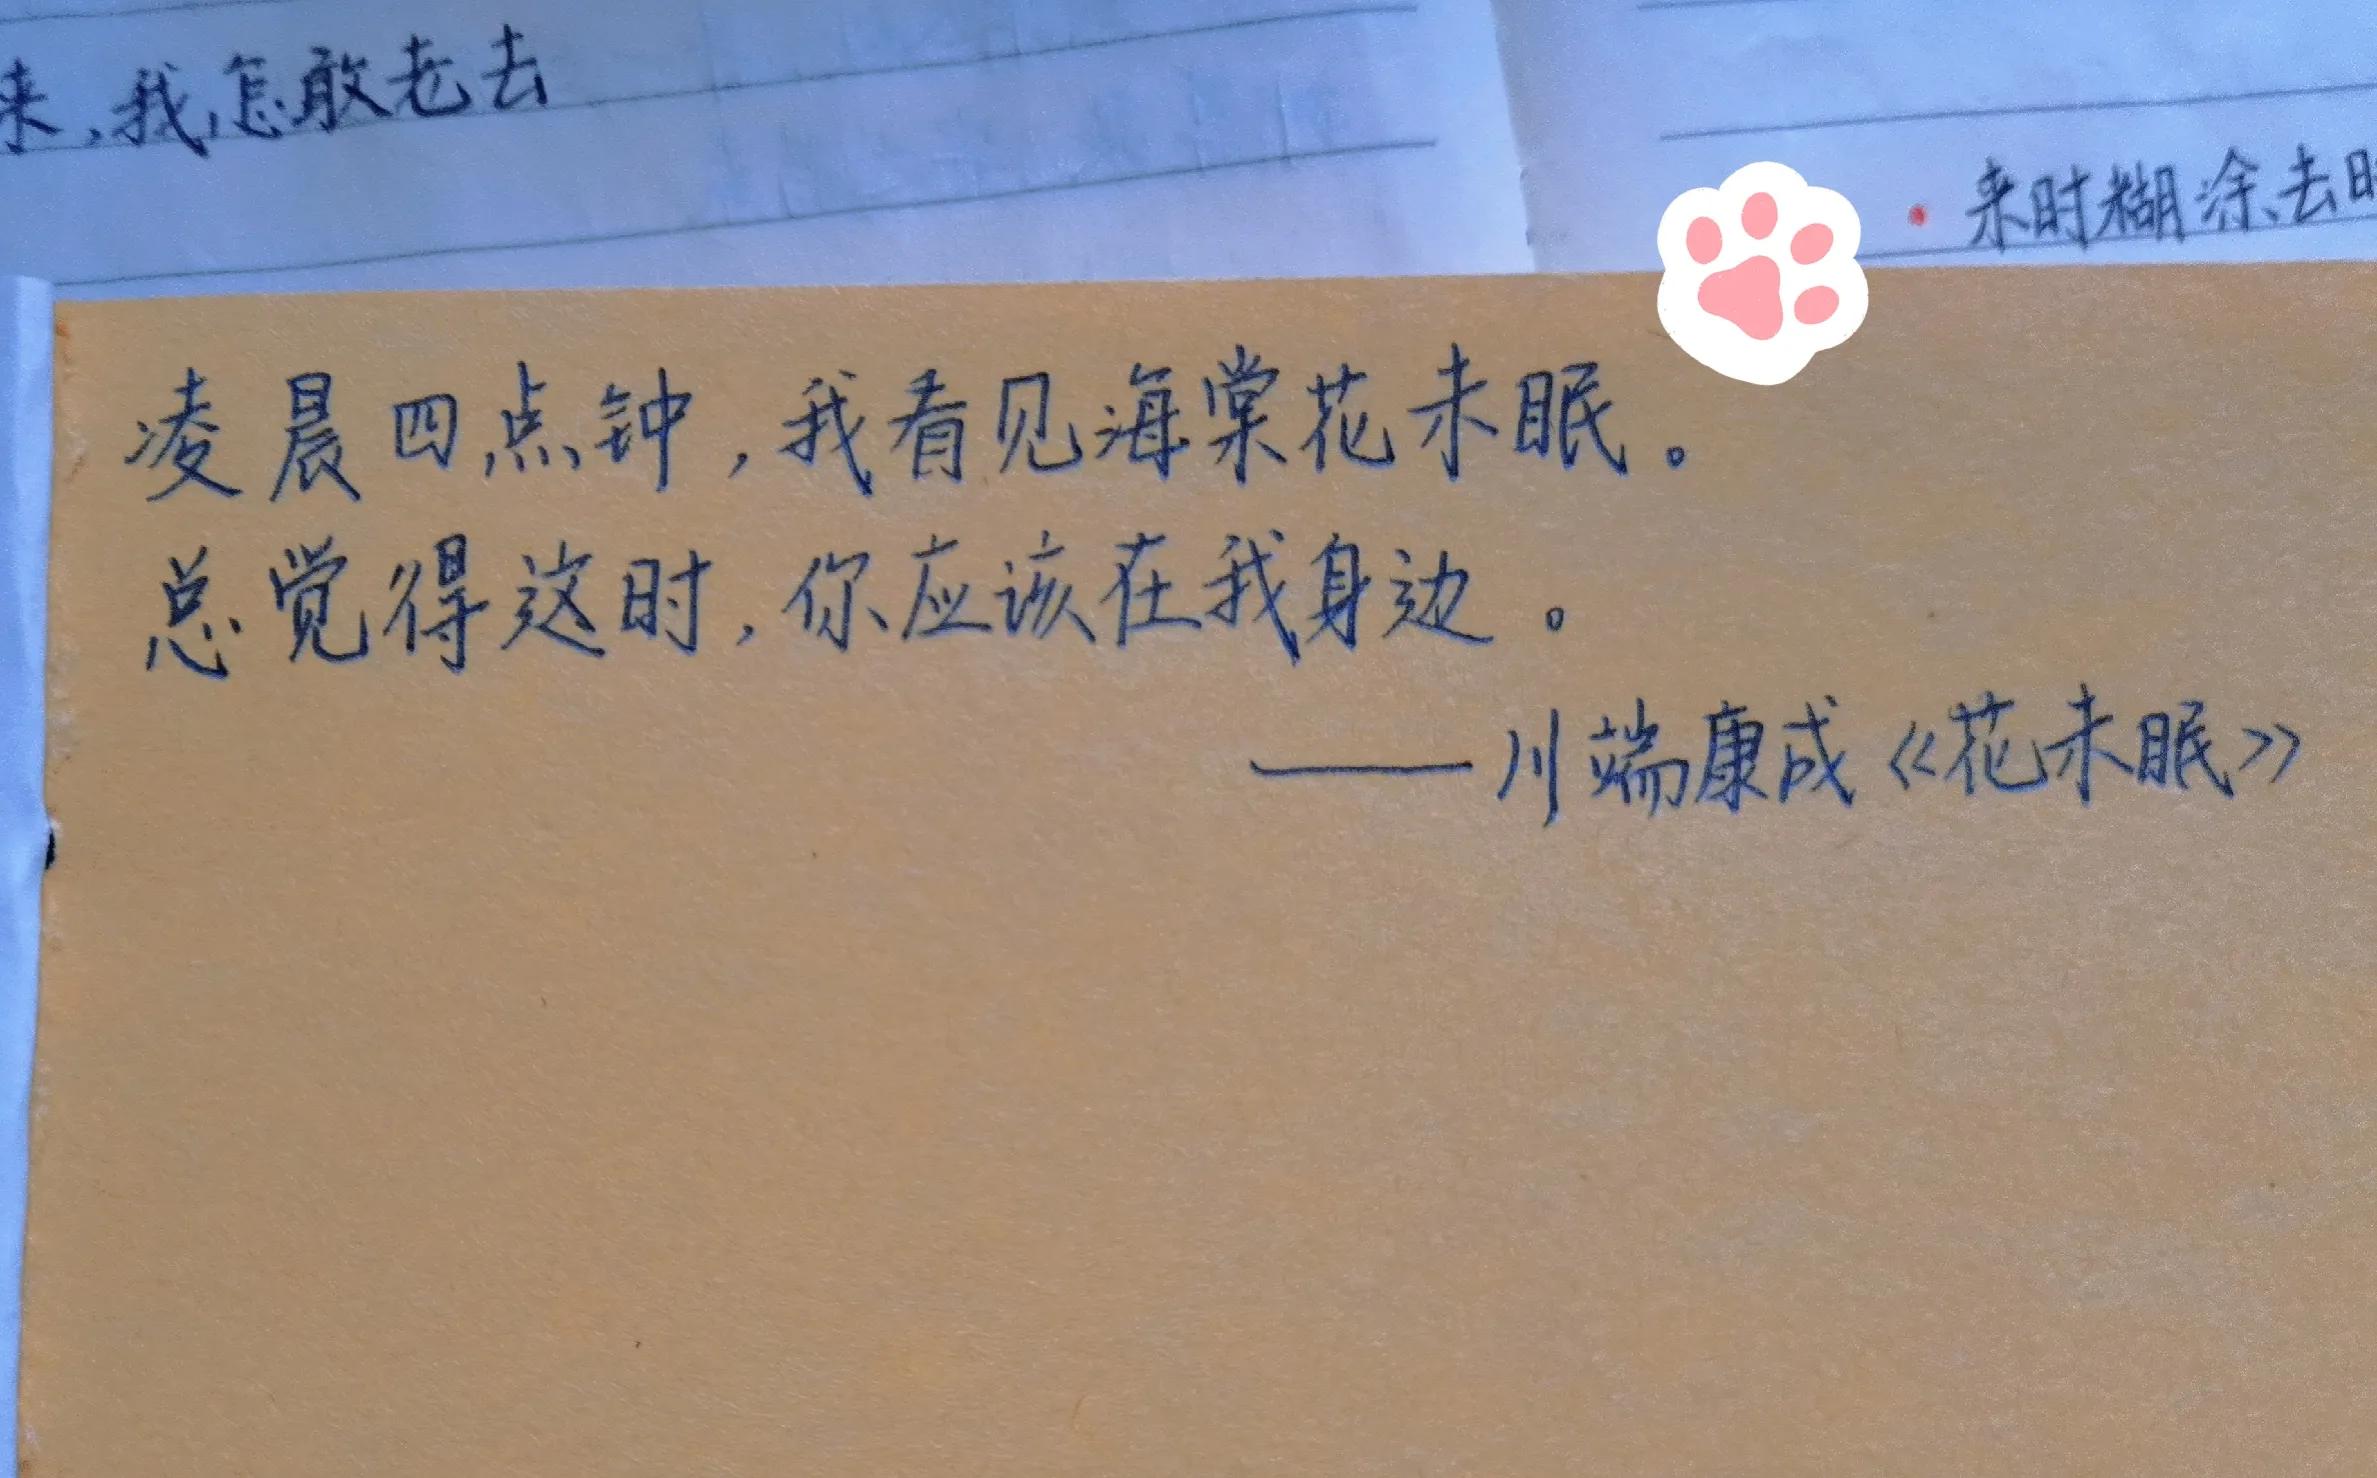 来,我怎敢老去
来时糊涂去时
凌晨四点钟,我看见海棠花未眠。
总觉得这时,你应该在我身边。
——川端康成《花未眠》